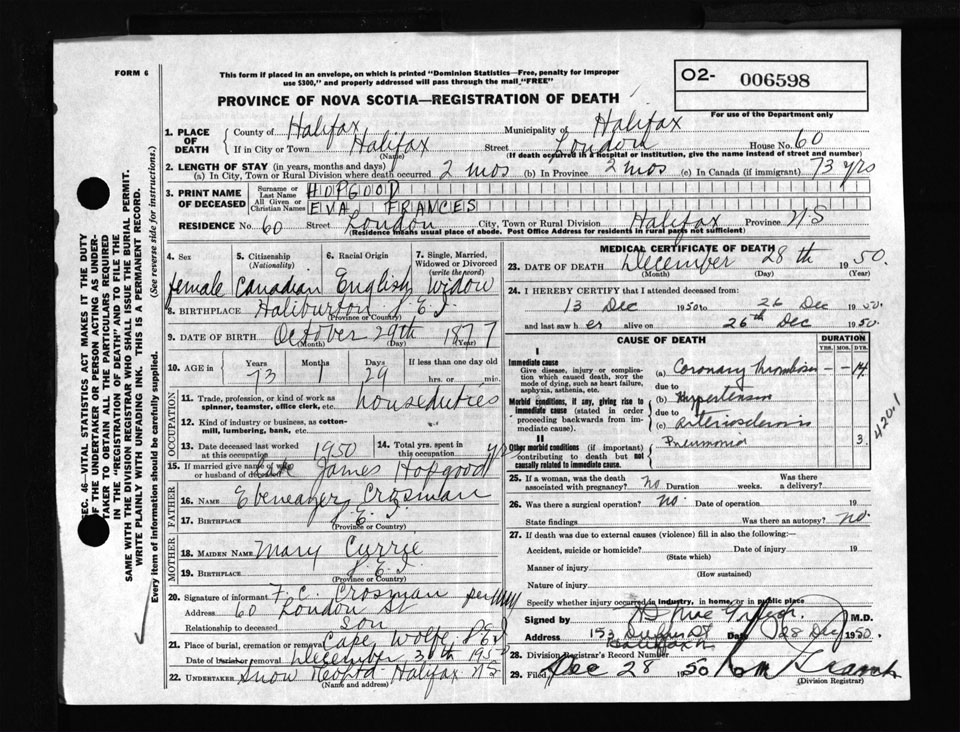 FORM 6
This form if placed in an envelope, on which is printed "Dominion Statistics—Free, penalty for improper
use $300," and properly addressed will pass through the mail "FREE"
O2- 006598
For use of the Department only
PROVINCE OF NOVA SCOTIA—REGISTRATION OF DEATH
1. PLACE OF DEATH { County of Halifax Municipality of Halifax
If in City or Town Halifax (Name) Street London House No. 60
(If death occurred in a hospital or institution, give the name instead of street and number)
2. LENGTH OF STAY (in years, months and days)
(a) In City, Town or Rural Division where death occurred 2 mos (b) In Province 2 mos (c) In Canada (if immigrant) 73 yrs
3. PRINT NAME OF DECEASED { Surname or Last Name HOPGOOD
All Given or Christian Names EVA FRANCES
RESIDENCE No. 60 Street London City, Town or Rural Division Halifax Province N.S
(Residence means usual place of abode. Post Office Address for residents in rural parts not sufficient)
4. Sex 5. Citizenship (Nationality) 6. Racial Origin 7. Single, Married, Widowed or Divorced (write the word)
female Canadian English Widow
8. BIRTHPLACE Haliburton P.E.I
(Province or Country)
9. DATE OF BIRTH October 29th 1877
(Month) (Day) (Year)
10. AGE in { Years 73 Months Days 29 If less than one day old
hrs. or min.
OCCUPATION
11. Trade, profession, or kind of work as spinner, teamster, office clerk, etc. houseduties
12. Kind of industry or business, as cotton-mill, lumbering, bank, etc.
13. Date deceased last worked at this occupation 1950 14. Total yrs. spent in this occupation yrs
15. If married give name of wife or husband of deceased James Hopgood
FATHER
16. NAME Ebeneazer Crosman
17. BIRTHPLACE P.E.I.
(Province or Country)
MOTHER
18. MAIDEN NAME Mary Currie
19. BIRTHPLACE P.E.I.
(Province or Country)
20. Signature of informant F. C. Crosman per
Address 60 London St
Relationship to deceased son
21. Place of burial, cremation or removal Cape Wolfe, P.E.I
Date of burial or removal December 30th 1950
22. UNDERTAKER Snow Halifax N S
(Name and address)
MEDICAL CERTIFICATE OF DEATH
23. DATE OF DEATH December 28th 1950.
(Month) (Day) (Year)
24. I HEREBY CERTIFY that I attended deceased from:
13 Dec 1950 to 26 Dec 1950.
and last saw her alive on 26th Dec 1950.
CAUSE OF DEATH DURATION
YRS. MOS. DYS.
I
Immediate cause
Give disease, injury or complication which caused death, NOT the mode of dying, such as heart failure, asphyxia, asthenia, etc.
(a) Coronary Thrombosis – – 14.
due to
Morbid conditions, if any, giving rise to immediate cause (stated in order proceeding backwards from immediate cause).
(b) Hypertension
due to
(c) Arteriosclerosis
II
Other morbid conditions (if important) contributing to death but not causally related to immediate cause.
Pneumonia 3.
4201
25. If a woman, was the death associated with pregnancy? No Duration weeks. Was there a delivery?
26. Was there a surgical operation? No. Date of operation 19
State findings Was there an autopsy? No.
27. If death was due to external causes (violence) fill in also the following:—
Accident, suicide or homicide? Date of injury 19
(State which)
Manner of injury
(How sustained)
Nature of injury
Specify whether injury occurred in industry, in home, or in public place
Signed by M.D.
Address 153 St Date 28 Dec 1950.
28. Division Registrar's Record Number
29. Filed Dec 28 1950
(Division Registrar)
SEC. 46—VITAL STATISTICS ACT MAKES IT THE DUTY
OF THE UNDERTAKER OR PERSON ACTING AS UNDERTAKER TO OBTAIN ALL THE PARTICULARS REQUIRED
IN THE "REGISTRATION OF DEATH" AND TO FILE THE
SAME WITH THE DIVISION REGISTRAR WHO SHALL ISSUE THE BURIAL PERMIT.
WRITE PLAINLY WITH UNFADING INK. THIS IS A PERMANENT RECORD.
Every item of information should be carefully supplied. (See reverse side for instructions.)